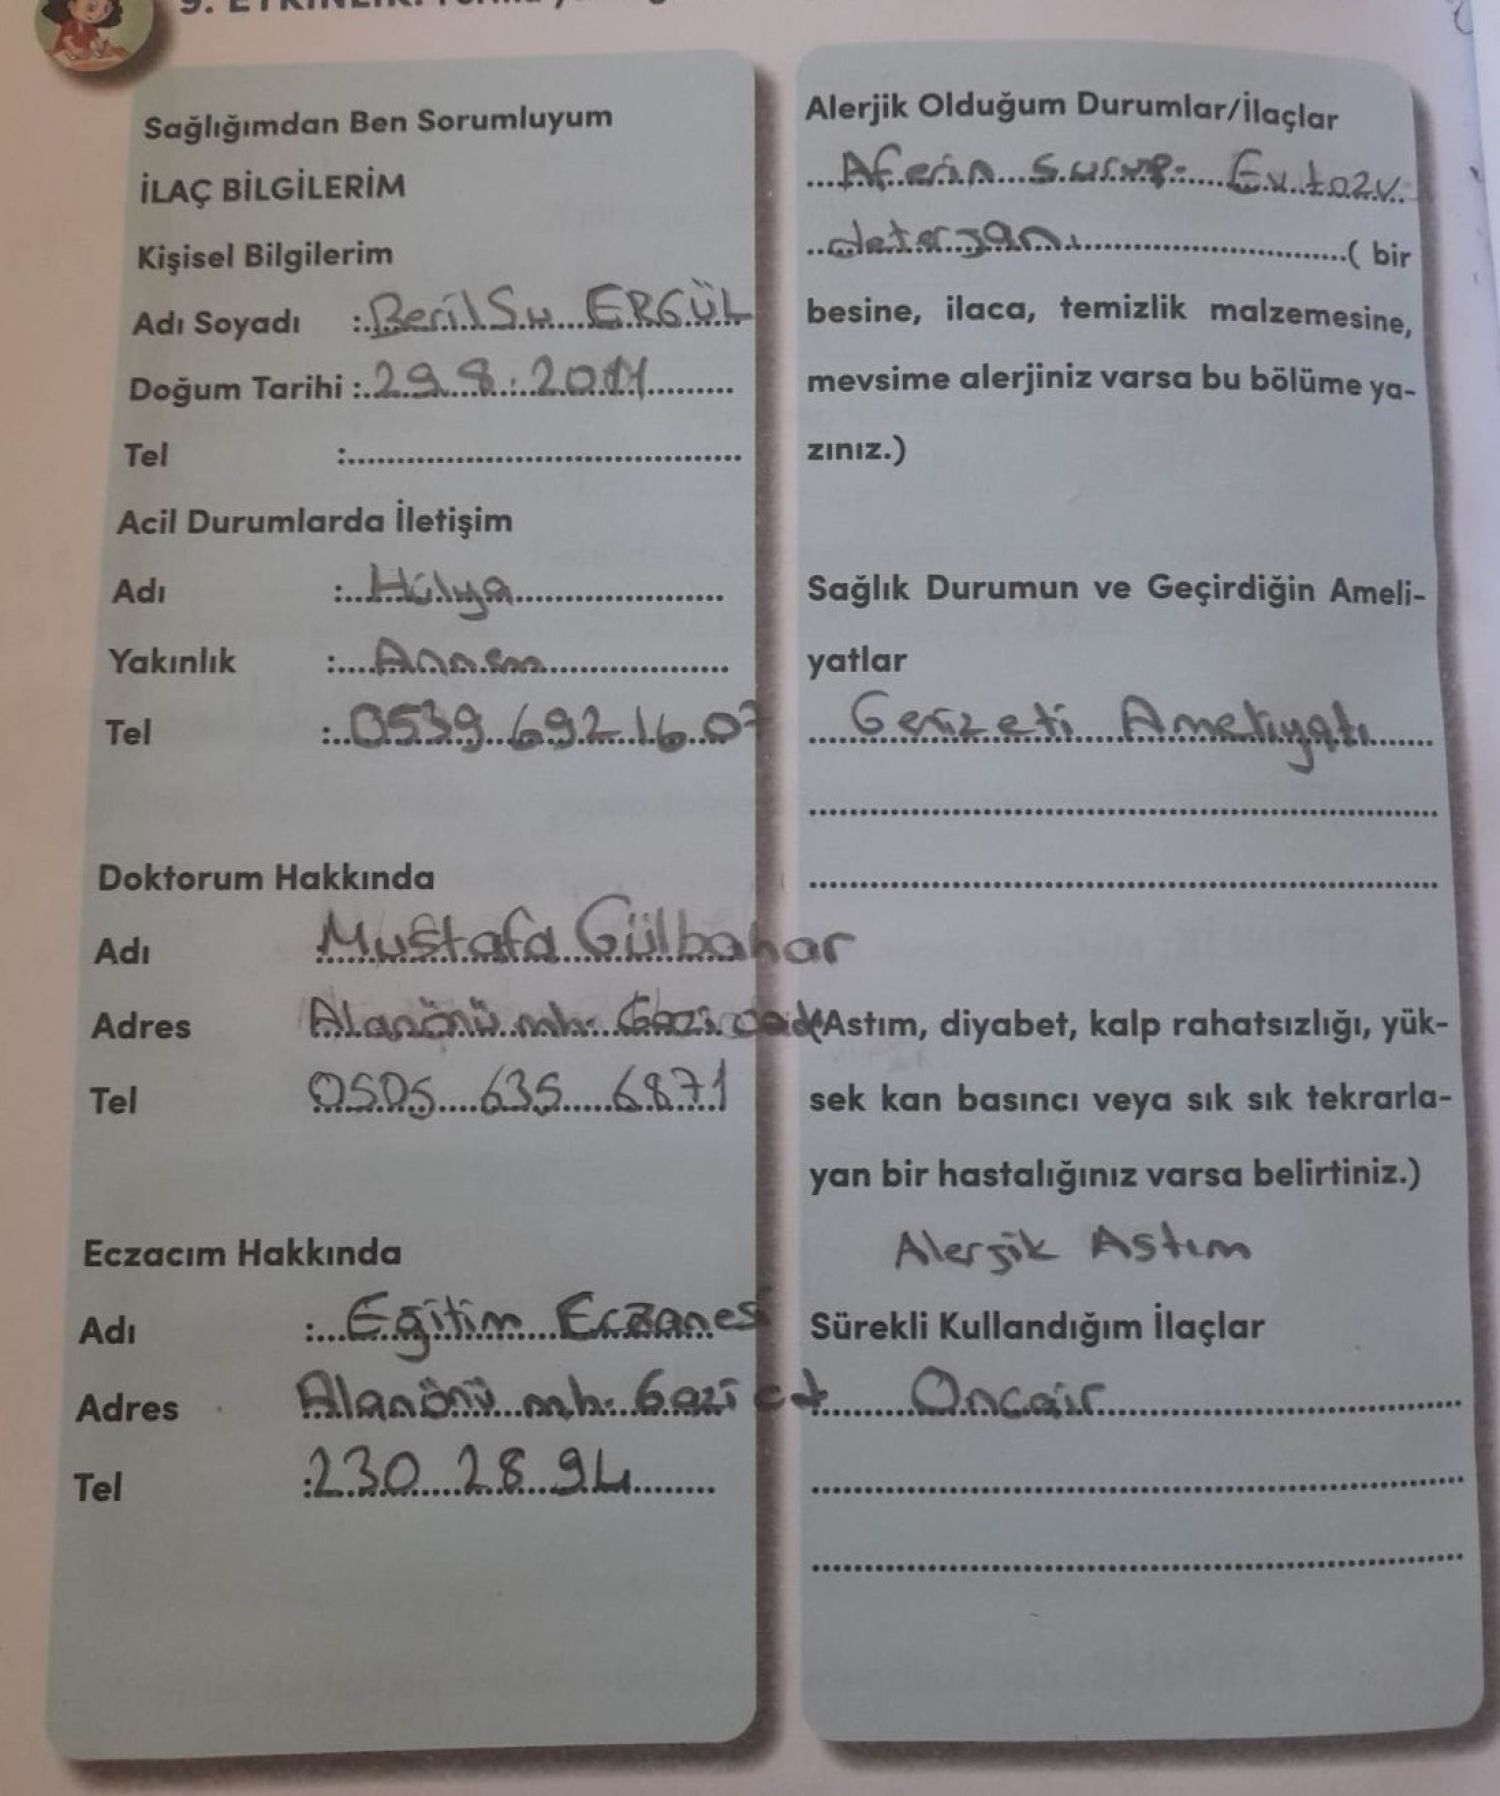 9. ETKİNLİK:
Sağlığımdan Ben Sorumluyum
İLAÇ BİLGİLERİM
Kişisel Bilgilerim
Adı Soyadı : Beril Su ERGÜL
Doğum Tarihi : 29.8.2011
Tel :
Acil Durumlarda İletişim
Adı : Hülya
Yakınlık : Annem
Tel : 0539 692 16 07
Doktorum Hakkında
Adı Mustafa Gülbahar
Adres Alanönü mh. Gazi cad
Tel 0505 635 6871
Eczacım Hakkında
Adı : Eğitim Eczanesi
Adres Alanönü mh. Gazi cd
Tel : 230 28 94
Alerjik Olduğum Durumlar/İlaçlar
Aferin Surup- Ev tozu
deterjanı ( bir
besine, ilaca, temizlik malzemesine,
mevsime alerjiniz varsa bu bölüme ya-
zınız.)
Sağlık Durumun ve Geçirdiğin Ameli-
yatlar
Genizeti Ameliyatı
(Astım, diyabet, kalp rahatsızlığı, yük-
sek kan basıncı veya sık sık tekrarla-
yan bir hastalığınız varsa belirtiniz.)
Alerjik Astım
Sürekli Kullandığım İlaçlar
Oncair